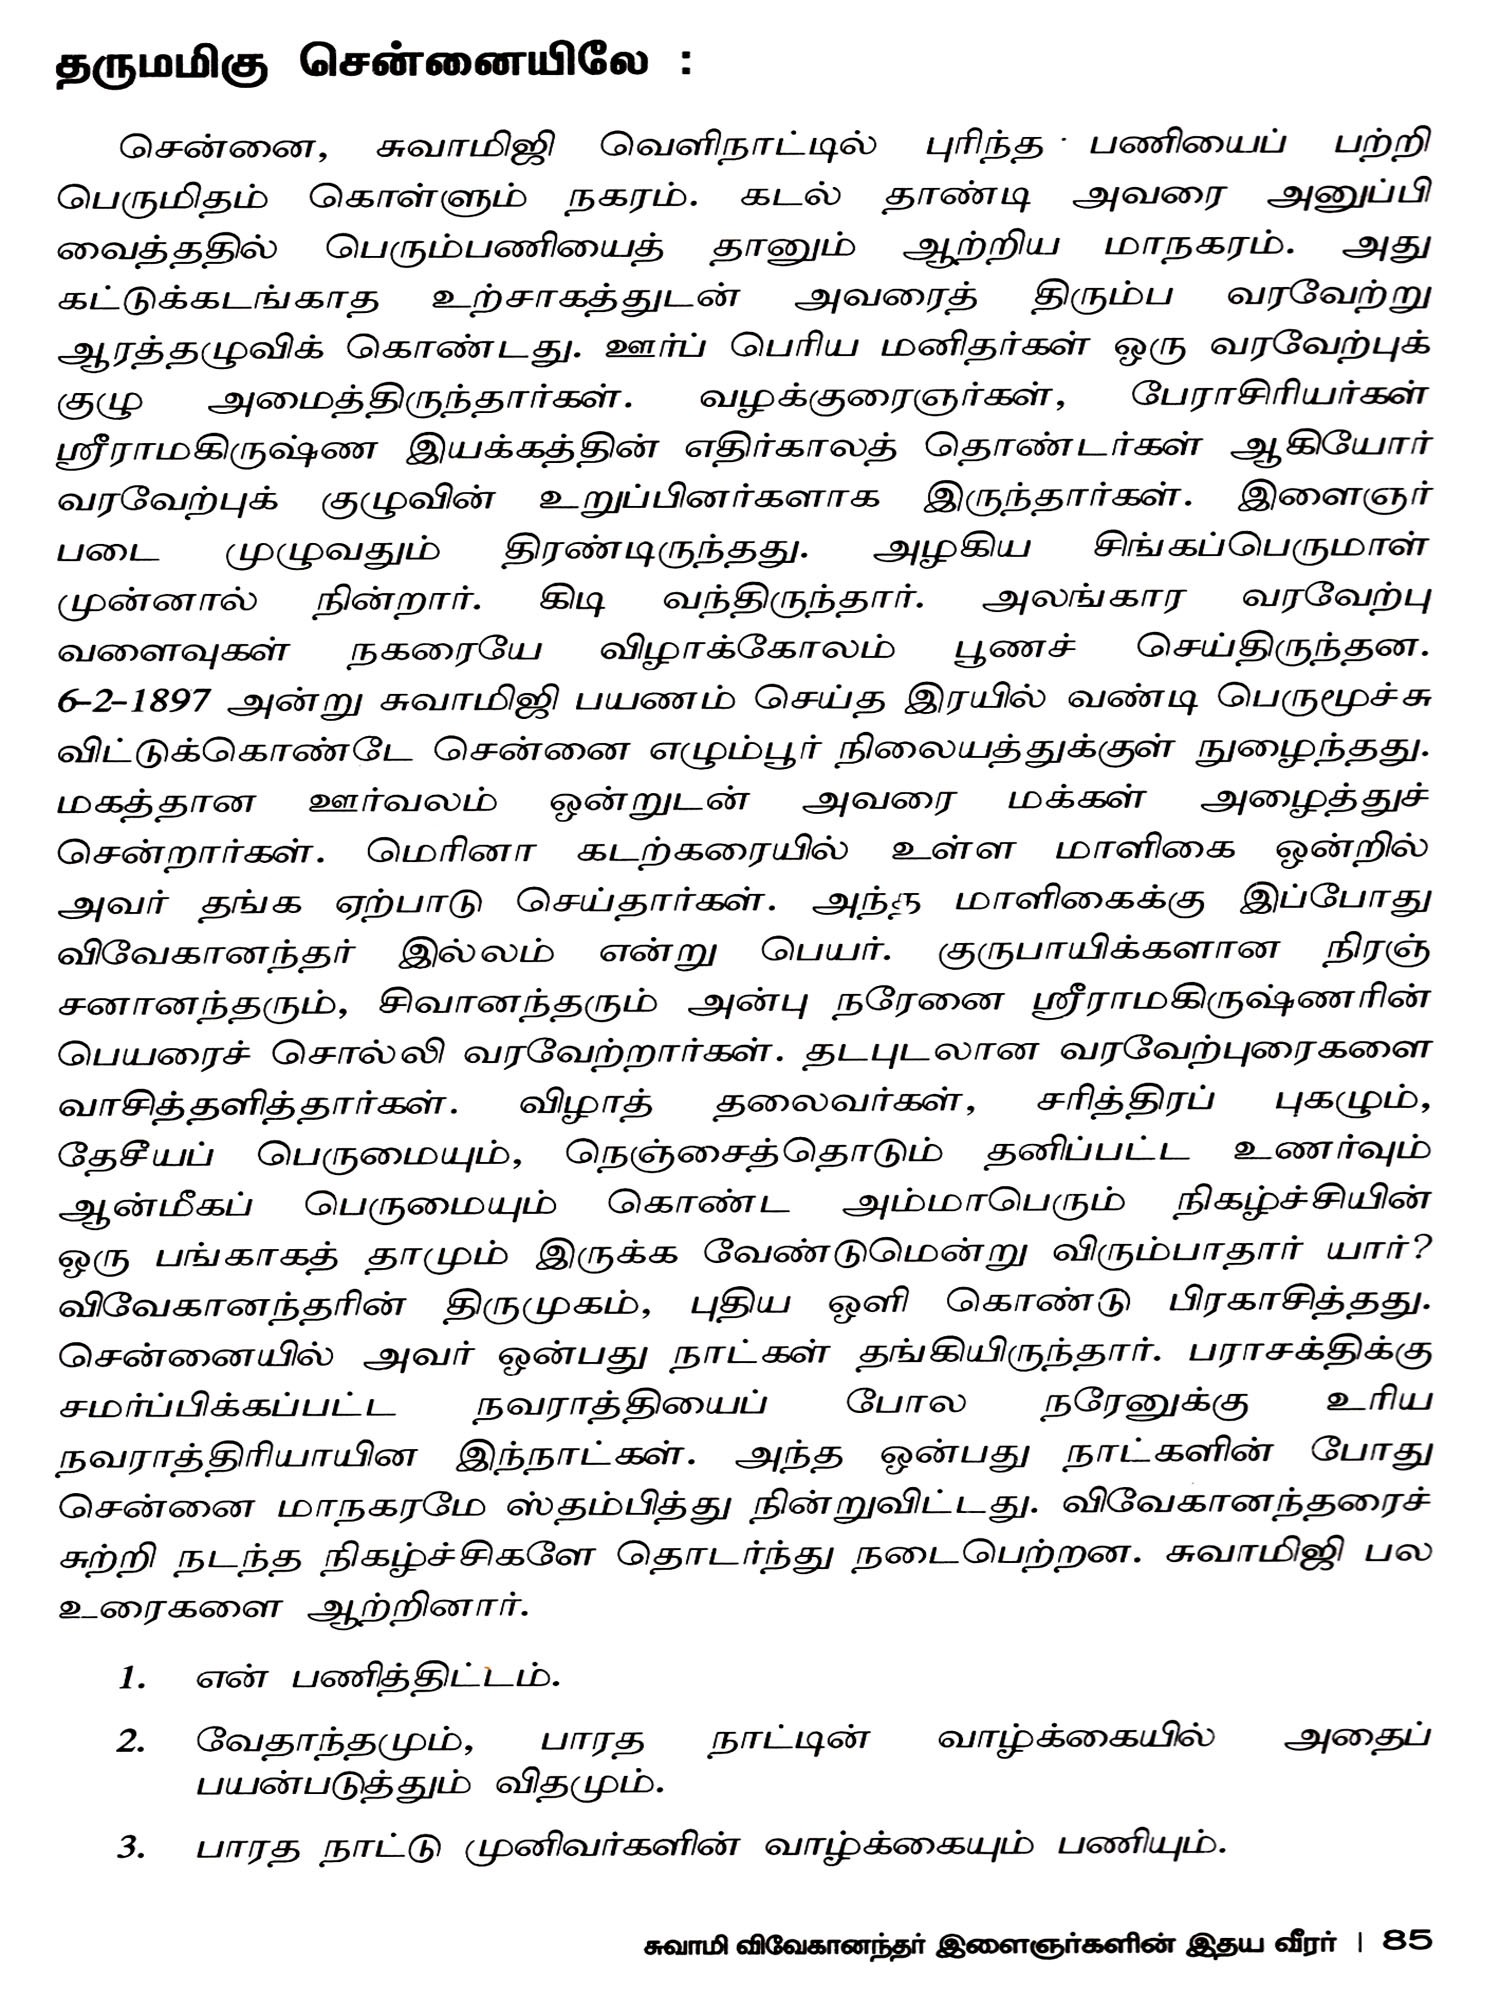 தருமமிகு சென்னையிலே :
சென்னை, சுவாமிஜி வெளிநாட்டில் புரிந்த பணியைப் பற்றி
பெருமிதம் கொள்ளும் நகரம். கடல் தாண்டி அவரை அனுப்பி
வைத்ததில் பெரும்பணியைத் தானும் ஆற்றிய மாநகரம். அது
கட்டுக்கடங்காத உற்சாகத்துடன் அவரைத் திரும்ப வரவேற்று
ஆரத்தழுவிக் கொண்டது. ஊர்ப் பெரிய மனிதர்கள் ஒரு வரவேற்புக்
குழு அமைத்திருந்தார்கள். வழக்குரைஞர்கள், பேராசிரியர்கள்
ஸ்ரீராமகிருஷ்ண இயக்கத்தின் எதிர்காலத் தொண்டர்கள் ஆகியோர்
வரவேற்புக் குழுவின் உறுப்பினர்களாக இருந்தார்கள். இளைஞர்
படை முழுவதும் திரண்டிருந்தது. அழகிய சிங்கப்பெருமாள்
முன்னால் நின்றார். கிடி வந்திருந்தார். அலங்கார வரவேற்பு
வளைவுகள் நகரையே விழாக்கோலம் பூணச் செய்திருந்தன.
6-2-1897 அன்று சுவாமிஜி பயணம் செய்த இரயில் வண்டி பெருமூச்சு
விட்டுக்கொண்டே சென்னை எழும்பூர் நிலையத்துக்குள் நுழைந்தது.
மகத்தான ஊர்வலம் ஒன்றுடன் அவரை மக்கள் அழைத்துச்
சென்றார்கள். மெரினா கடற்கரையில் உள்ள மாளிகை ஒன்றில்
அவர் தங்க ஏற்பாடு செய்தார்கள். அந்த மாளிகைக்கு இப்போது
விவேகானந்தர் இல்லம் என்று பெயர். குருபாயிக்களான நிரஞ்
சனானந்தரும், சிவானந்தரும் அன்பு நரேனை ஸ்ரீராமகிருஷ்ணரின்
பெயரைச் சொல்லி வரவேற்றார்கள். தடபுடலான வரவேற்புரைகளை
வாசித்தளித்தார்கள். விழாத் தலைவர்கள், சரித்திரப் புகழும்,
தேசீயப் பெருமையும், நெஞ்சைத்தொடும் தனிப்பட்ட உணர்வும்
ஆன்மீகப் பெருமையும் கொண்ட அம்மாபெரும் நிகழ்ச்சியின்
ஒரு பங்காகத் தாமும் இருக்க வேண்டுமென்று விரும்பாதார் யார்?
விவேகானந்தரின் திருமுகம், புதிய ஒளி கொண்டு பிரகாசித்தது.
சென்னையில் அவர் ஒன்பது நாட்கள் தங்கியிருந்தார். பராசக்திக்கு
சமர்ப்பிக்கப்பட்ட நவராத்தியைப் போல நரேனுக்கு உரிய
நவராத்திரியாயின இந்நாட்கள். அந்த ஒன்பது நாட்களின் போது
சென்னை மாநகரமே ஸ்தம்பித்து நின்றுவிட்டது. விவேகானந்தரைச்
சுற்றி நடந்த நிகழ்ச்சிகளே தொடர்ந்து நடைபெற்றன. சுவாமிஜி பல
உரைகளை ஆற்றினார்.
1. என் பணித்திட்டம்.
2. வேதாந்தமும், பாரத நாட்டின் வாழ்க்கையில் அதைப்
பயன்படுத்தும் விதமும்.
3. பாரத நாட்டு முனிவர்களின் வாழ்க்கையும் பணியும்.
சுவாமி விவேகானந்தர் இளைஞர்களின் இதய வீரர் | 85